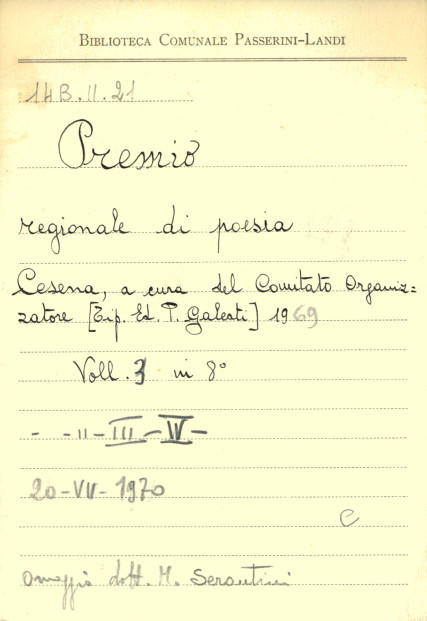 BIBLIOTECA COMUNALE PASSERINI-LANDI
14B.II.21
Premio
regionale di poesia
Cesena, a cura del Comitato Organiz=
zatore [Tip. Ed. P. Galeati] 1969
Voll. 3 in 8°
- -II-III-IV-
20-VII-1970
e
Omaggio dott. M. Serantini